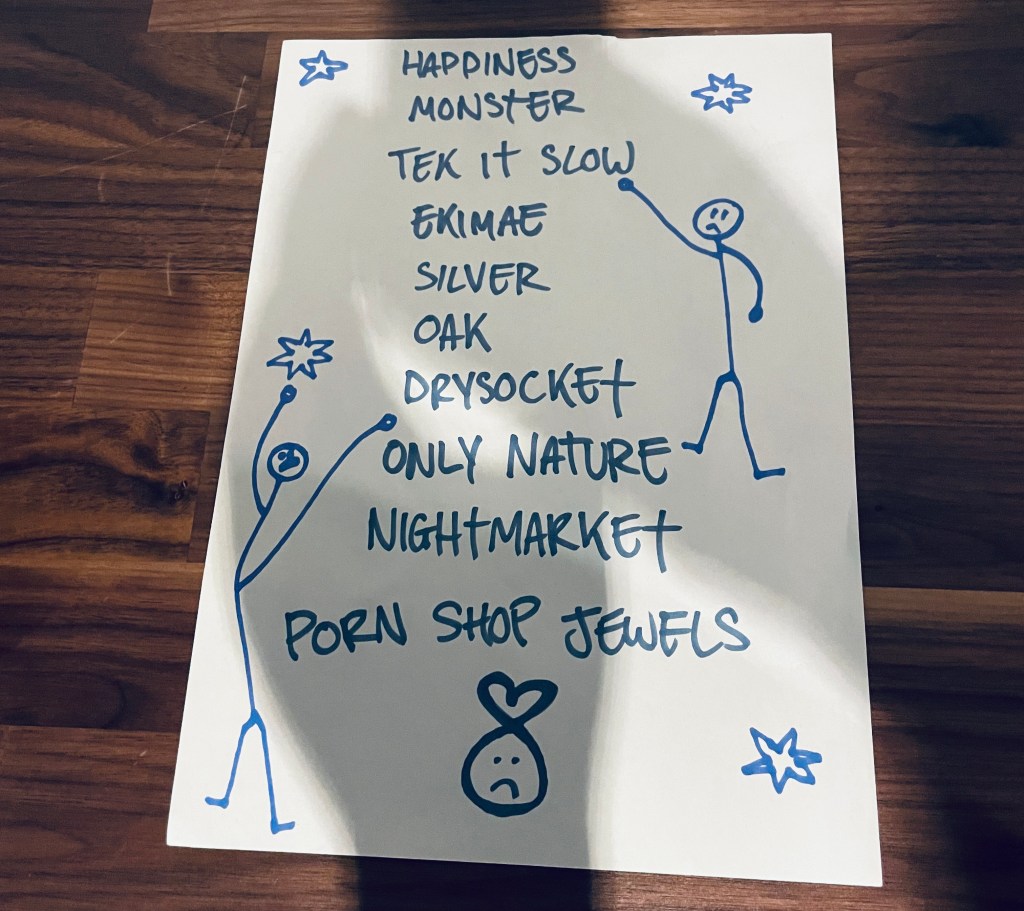 HAPPINESS
MONSTER
TEK IT SLOW
EKIMAE
SILVER
OAK
DRYSOCKET
ONLY NATURE
NIGHTMARKET
PORN SHOP JEWELS